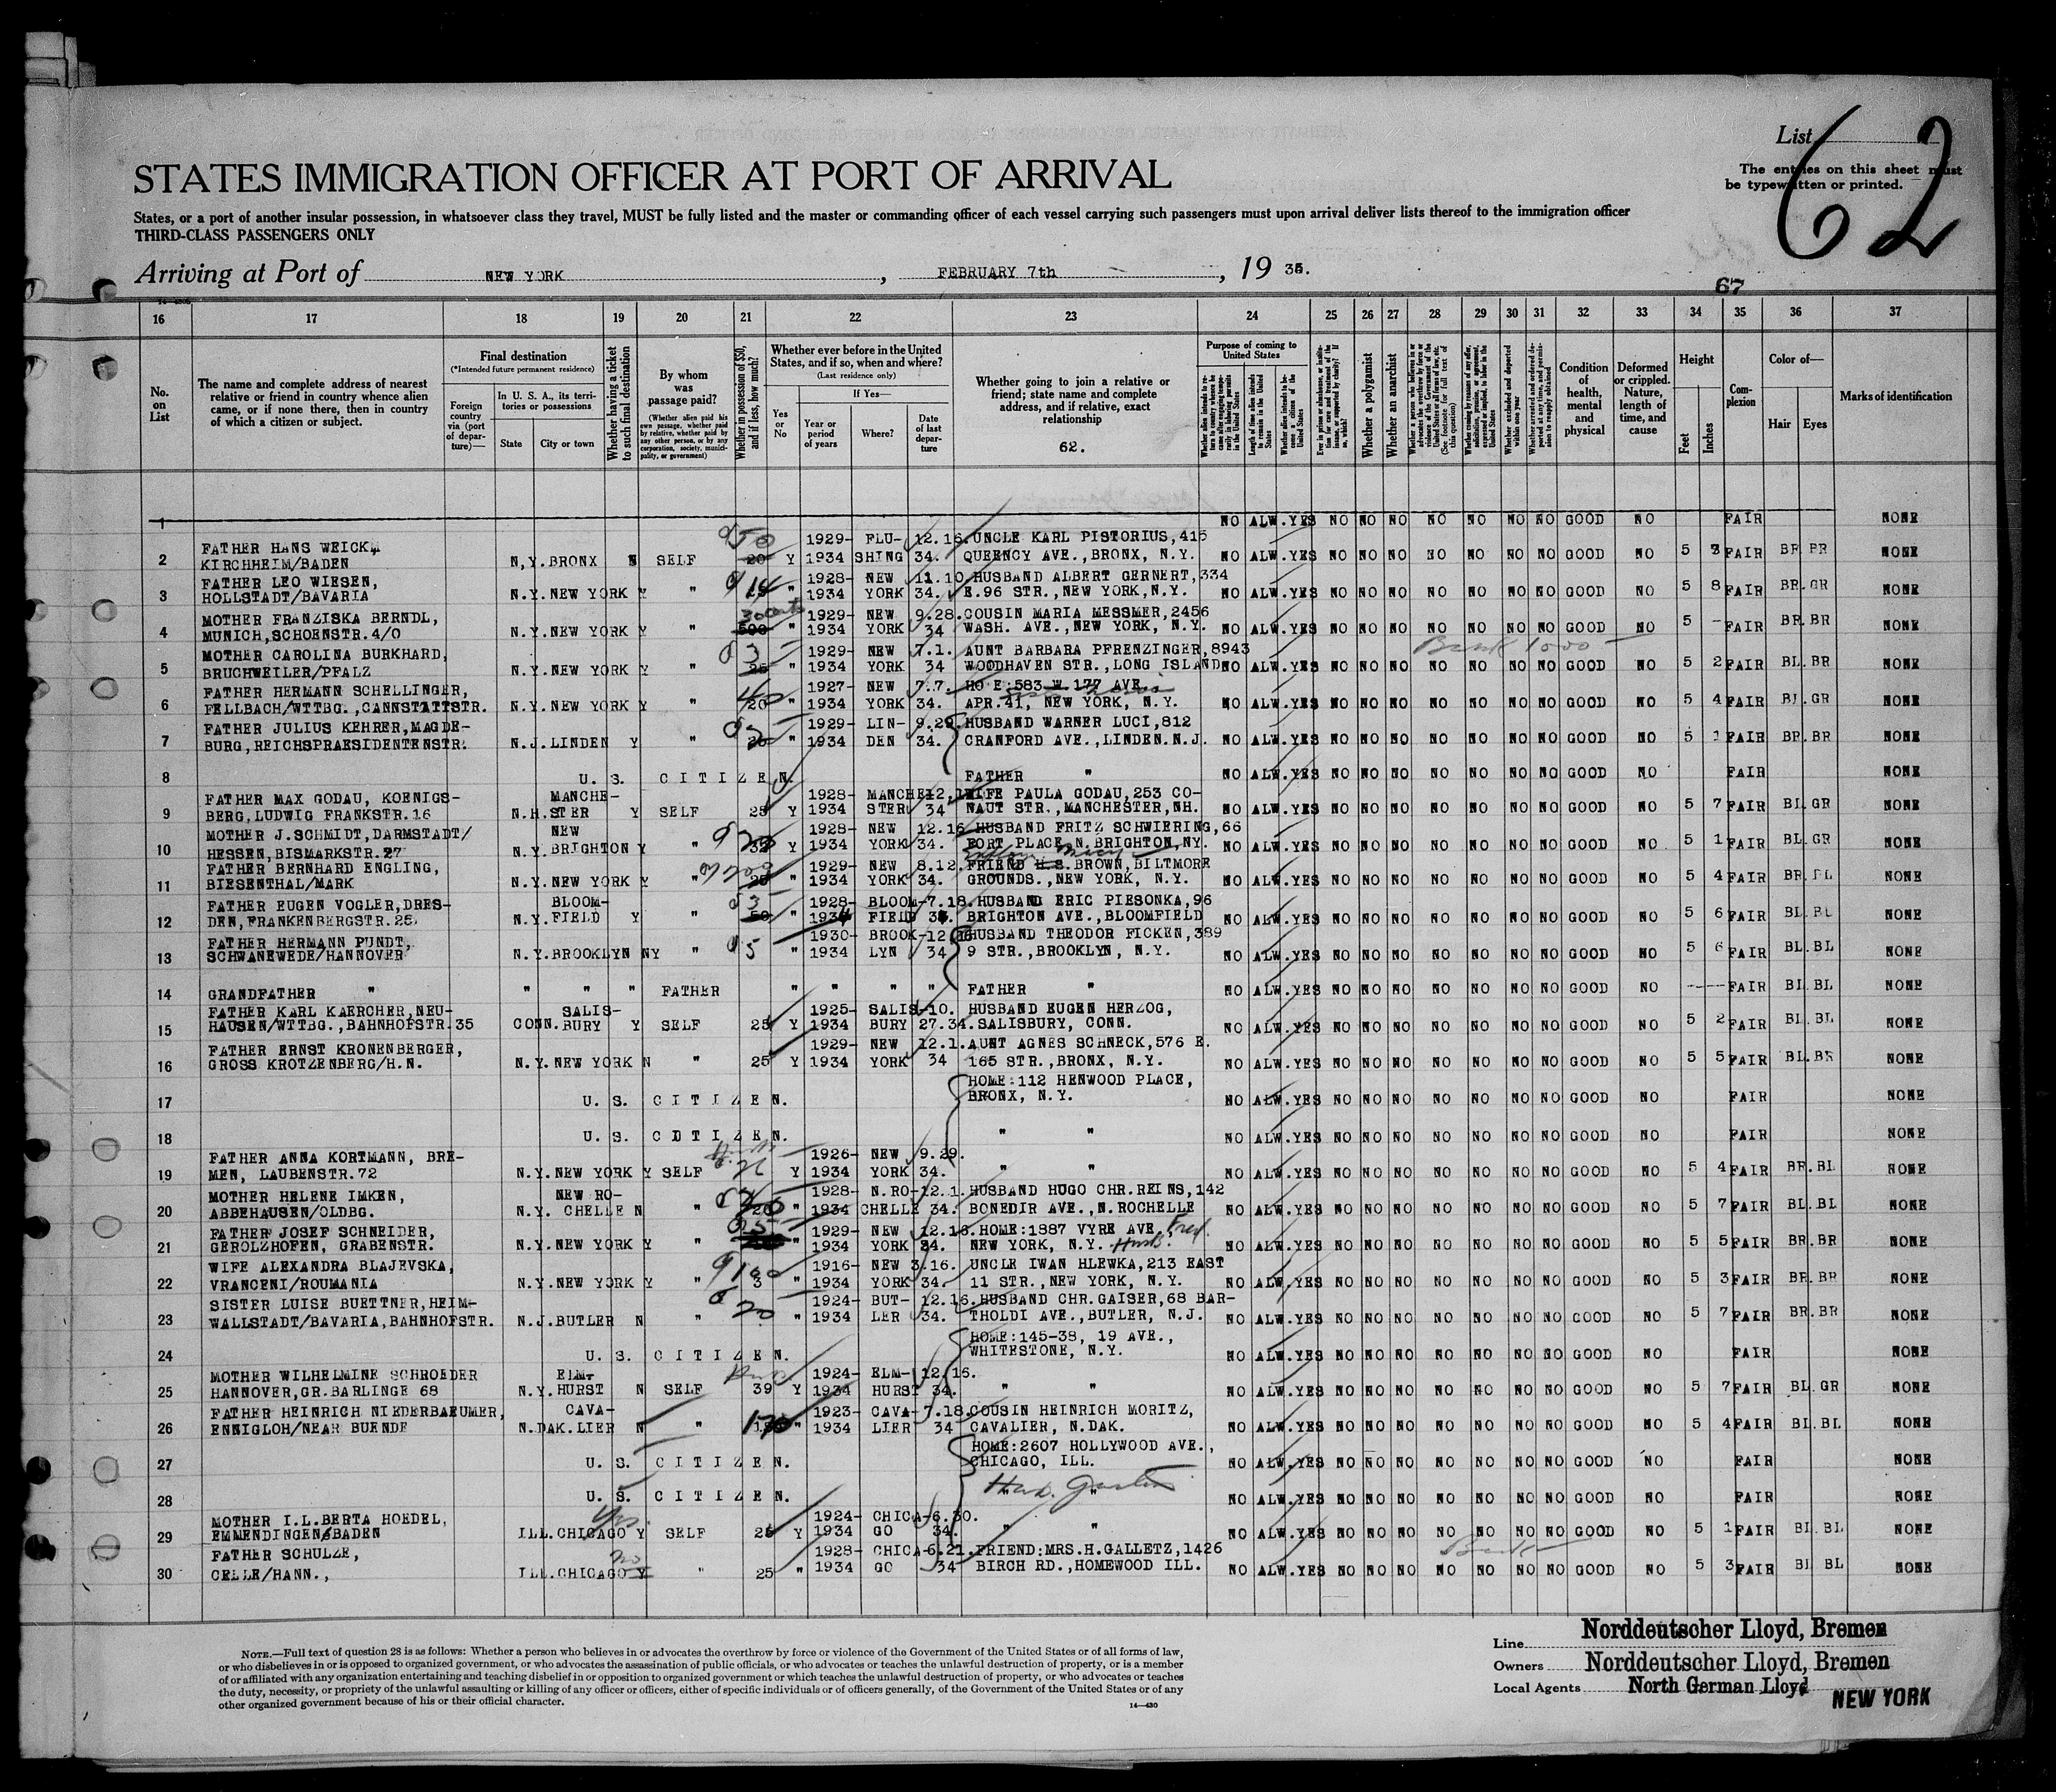 List
62
The entries on this sheet must
be typewritten or printed.
STATES IMMIGRATION OFFICER AT PORT OF ARRIVAL
States, or a port of another insular possession, in whatsoever class they travel, MUST be fully listed and the master or commanding officer of each vessel carrying such passengers must upon arrival deliver lists thereof to the immigration officer
THIRD-CLASS PASSENGERS ONLY
Arriving at Port of NEW YORK, FEBRUARY 7th, 19 35.
67
16 17 18 19 20 21 22 23 24 25 26 27 28 29 30 31 32 33 34 35 36 37
No. on List
The name and complete address of nearest relative or friend in country whence alien came, or if none there, then in country of which a citizen or subject.
Final destination
(*Intended future permanent residence)
Foreign country via (port of departure)—
In U. S. A., its territories or possessions
State
City or town
Whether having a ticket to such final destination
By whom was passage paid?
(Whether alien paid his own passage, whether paid by relative, whether paid by any other person, or by any corporation, society, municipality, or government)
Whether in possession of $50, and if less, how much?
Whether ever before in the United States, and if so, when and where?
(Last residence only)
Yes or No
If Yes—
Year or period of years
Where?
Date of last departure
Whether going to join a relative or friend; state name and complete address, and if relative, exact relationship
62.
Purpose of coming to United States
Whether a polygamist
Whether an anarchist
Condition of health, mental and physical
Deformed or crippled. Nature, length of time, and cause
Height
Feet
Inches
Complexion
Color of—
Hair
Eyes
Marks of identification
1 NO ALW. YES NO NO NO NO NO NO NO GOOD NO FAIR NONE
FATHER HANS WEICKM 1929- FLU- 12.16. UNCLE KARL PISTORIUS, 415
2 KIRCHHEIM/BADEN N.Y. BRONX N SELF 20 Y 1934 SHING 34. QUEENCY AVE., BRONX, N.Y. NO ALW. YES NO NO NO NO NO NO NO GOOD NO 5 3 FAIR BR BR NONE
FATHER LEO WIESEN, 1928- NEW 11.10. HUSBAND ALBERT GERNERT, 334
3 HOLLSTADT/BAVARIA N.Y. NEW YORK Y " 14 " 1934 YORK 34. E.96 STR., NEW YORK, N.Y. NO ALW. YES NO NO NO NO NO NO NO GOOD NO 5 8 FAIR BR. GR NONE
MOTHER FRANZISKA BERNDL, 30 1929- NEW 9.28. COUSIN MARIA MESSMER, 2456
4 MUNICH, SCHOENSTR.4/0 N.Y. NEW YORK Y " 500 " 1934 YORK 34 WASH. AVE., NEW YORK, N.Y. NO ALW. YES NO NO NO NO NO NO NO GOOD NO 5 - FAIR BR. BR NONE
MOTHER CAROLINA BURKHARD, 3 1929- NEW 7.1. AUNT BARBARA PFRENZINGER, 8943 Bank 1000
5 BRUCHWEILER/PFALZ N.Y. NEW YORK Y " 25 " 1934 YORK 34 WOODHAVEN STR., LONG ISLAND NO ALW. YES NO NO NO NO NO NO NO GOOD NO 5 2 FAIR BL. BR NONE
FATHER HERMANN SCHELLINGER, 40 1927- NEW 7.7. HO E:583 W 177 AVE
6 FELLBACH/WTTBG., CANNSTATTSTR. N.Y. NEW YORK Y " 20 " 1934 YORK 34. APR.41, NEW YORK, N.Y. NO ALW. YES NO NO NO NO NO NO NO GOOD NO 5 4 FAIR BL. GR NONE
FATHER JULIUS KEHRER, MAGDE- 1929- LIN- 9.29. HUSBAND WARNER LUCI, 812
7 BURG, REICHSPRAESIDENTENSTR. N.J. LINDEN Y " 1934 DEN 34. CRANFORD AVE., LINDEN. N.J. NO ALW. YES NO NO NO NO NO NO NO GOOD NO 5 1 FAIR BR. BR NONE
8 U. S. CITIZEN. FATHER " NO ALW. YES NO NO NO NO NO NO NO GOOD NO FAIR NONE
FATHER MAX GODAU, KOENIGS- MANCHE- 1928- MANCHE WIFE PAULA GODAU, 253 CO-
9 BERG, LUDWIG FRANKSTR.16 N.H. STER Y SELF 25 Y 1934 STER 34 NAUT STR., MANCHESTER, NH. NO ALW. YES NO NO NO NO NO NO NO GOOD NO 5 7 FAIR BL GR NONE
MOTHER J. SCHMIDT, DARMSTADT/ NEW 1928- NEW 12.16. HUSBAND FRITZ SCHWIERING, 66
10 HESSEN, BISMARKSTR.27 N.Y. BRIGHTON Y " Y 1934 YORK 34. FORT PLACE, N. BRIGHTON, NY. NO ALW. YES NO NO NO NO NO NO NO GOOD NO 5 1 FAIR BL. GR NONE
FATHER BERNHARD ENGLING, 1929- NEW 8.12. FRIEND H.S. BROWN, BILTMORE
11 BIESENTHAL/MARK N.Y. NEW YORK Y " 25 " 1934 YORK 34. GROUNDS., NEW YORK, N.Y. NO ALW. YES NO NO NO NO NO NO NO GOOD NO 5 4 FAIR BR. BL NONE
FATHER EUGEN VOGLER, DRES- BLOOM- 3 1928- BLOOM- 7.18. HUSBAND ERIC PIESONKA, 96
12 DEN, FRANKENBERGSTR.25. N.Y. FIELD Y " 50 " 1934 FIELD 34. BRIGHTON AVE., BLOOMFIELD NO ALW. YES NO NO NO NO NO NO NO GOOD NO 5 6 FAIR BL. BL NONE
FATHER HERMANN PUNDT, 1930- BROOK- 12.16 HUSBAND THEODOR FICKEN, 389
13 SCHWANEWEDE/HANNOVER N.Y. BROOKLYN NY " 5 " 1934 LYN 34 9 STR., BROOKLYN, N.Y. NO ALW. YES NO NO NO NO NO NO NO GOOD NO 5 6 FAIR BL. BL NONE
14 GRANDFATHER " " " " FATHER " " " " FATHER " NO ALW. YES NO NO NO NO NO NO NO GOOD NO ----- FAIR BL BL NONE
FATHER KARL KAERCHER, NEU- SALIS- 1925- SALIS- 10. HUSBAND EUGEN HERZOG,
15 HAUSEN/WTTBG., BAHNHOFSTR.35 CONN. BURY Y SELF 25 Y 1934 BURY 27.34. SALISBURY, CONN. NO ALW. YES NO NO NO NO NO NO NO GOOD NO 5 2 FAIR BL. BL NONE
FATHER ERNST KRONENBERGER, 1929- NEW 12.1. AUNT AGNES SCHNECK, 576 E.
16 GROSS KROTZENBERG/H.N. N.Y. NEW YORK N " 25 Y 1934 YORK 34 165 STR., BRONX, N.Y. NO ALW. YES NO NO NO NO NO NO NO GOOD NO 5 5 FAIR BL. BR NONE
HOME:112 HENWOOD PLACE,
17 U. S. CITIZEN. BRONX, N.Y. NO ALW. YES NO NO NO NO NO NO NO GOOD NO FAIR NONE
18 U. S. CDTIZEN. " " NO ALW. YES NO NO NO NO NO NO NO GOOD NO FAIR NONE
FATHER ANNA KORTMANN, BRE- 1926- NEW 9.29.
19 MEN, LAUBENSTR.72 N.Y. NEW YORK Y SELF Y 1934 YORK 34. " " NO ALW. YES NO NO NO NO NO NO NO GOOD NO 5 4 FAIR BR. BL NONE
MOTHER HELENE IMKEN, NEW RO- 1928- N.RO- 12.1. HUSBAND HUGO CHR. REINS, 142
20 ABBEHAUSEN/OLDBG. N.Y. CHELLE N " " 1934 CHELLE 34. BONEDIR AVE., N.ROCHELLE NO ALW. YES NO NO NO NO NO NO NO GOOD NO 5 7 FAIR BL. BL NONE
FATHER JOSEF SCHNEIDER, 1929- NEW 12.16. HOME:1887 VYRE AVE, Fred.
21 GEROLZHOFEN, GRABENSTR. N.Y. NEW YORK Y " " 1934 YORK 34. NEW YORK, N.Y. Husb. NO ALW. YES NO NO NO NO NO NO NO GOOD NO 5 5 FAIR BR. BR NONE
WIFE ALEXANDRA BLAJEVSKA, 1916- NEW 3.16. UNCLE IWAN HLEWKA, 213 EAST
22 VRANCENI/ROUMANIA N.Y. NEW YORK Y " " 1934 YORK 34. 11 STR., NEW YORK, N.Y. NO ALW. YES NO NO NO NO NO NO NO GOOD NO 5 3 FAIR BR. BR NONE
SISTER LUISE BUETTNER, HEIM- 1924- BUT- 12.16. HUSBAND CHR. GAISER, 68 BAR-
23 WALLSTADT/BAVARIA, BAHNHOFSTR. N.J. BUTLER N " 20 " 1934 LER 34. THOLDI AVE., BUTLER, N.J. NO ALW. YES NO NO NO NO NO NO NO GOOD NO 5 7 FAIR BR. BR NONE
HOME:145-38, 19 AVE.,
24 U. S. CITIZEN. WHITESTONE, N.Y. NO ALW. YES NO NO NO NO NO NO NO GOOD NO FAIR NONE
MOTHER WILHELMINE SCHROEDER ELM- 1924- ELM- 12.16.
25 HANNOVER, GR. BARLINGE 68 N.Y. HURST N SELF 39 Y 1934 HURST 34. " " NO ALW. YES NO NO NO NO NO NO NO GOOD NO 5 7 FAIR BL. GR NONE
FATHER HEINRICH NIEDERBAEUMER, CAVA- 1923- CAVA- 7.18. COUSIN HEINRICH MORITZ,
26 ENNIGLOH/NEAR BUENDE N.DAK. LIER N " 170 " 1934 LIER 34 CAVALIER, N.DAK. NO ALW. YES NO NO NO NO NO NO NO GOOD NO 5 4 FAIR BL. BL NONE
HOME:2607 HOLLYWOOD AVE.,
27 U. S. CITIZEN. CHICAGO, ILL. NO ALW. YES NO NO NO NO NO NO NO GOOD NO FAIR NONE
28 U. S. CITIZEN. " " NO ALW. YES NO NO NO NO NO NO NO GOOD NO FAIR NONE
MOTHER I.L. BERTA HOEDEL, Yes. 1924- CHICA- 6.30.
29 EMMENDINGEN/BADEN ILL. CHICAGO Y SELF 25 Y 1934 GO 34. " " NO ALW. YES NO NO NO NO NO NO NO GOOD NO 5 1 FAIR BL. BL NONE
FATHER SCHULZE, no 1928- CHICA- 6.21. FRIEND:MRS. H. GALLETZ, 1426 Bank
30 CELLE/HANN., ILL. CHICAGO Y " 25 " 1934 GO 34 BIRCH RD., HOMEWOOD ILL. NO ALW. YES NO NO NO NO NO NO NO GOOD NO 5 3 FAIR BL BL NONE
NOTE.—Full text of question 28 is as follows: Whether a person who believes in or advocates the overthrow by force or violence of the Government of the United States or of all forms of law,
or who disbelieves in or is opposed to organized government, or who advocates the assassination of public officials, or who advocates or teaches the unlawful destruction of property, or is a member
of or affiliated with any organization entertaining and teaching disbelief in or opposition to organized government or which teaches the unlawful destruction of property, or who advocates or teaches
the duty, necessity, or propriety of the unlawful assaulting or killing of any officer or officers, either of specific individuals or of officers generally, of the Government of the United States or of any
other organized government because of his or their official character.
14—430
Line Norddeutscher Lloyd, Bremen
Owners Norddeutscher Lloyd, Bremen
Local Agents North German Lloyd NEW YORK